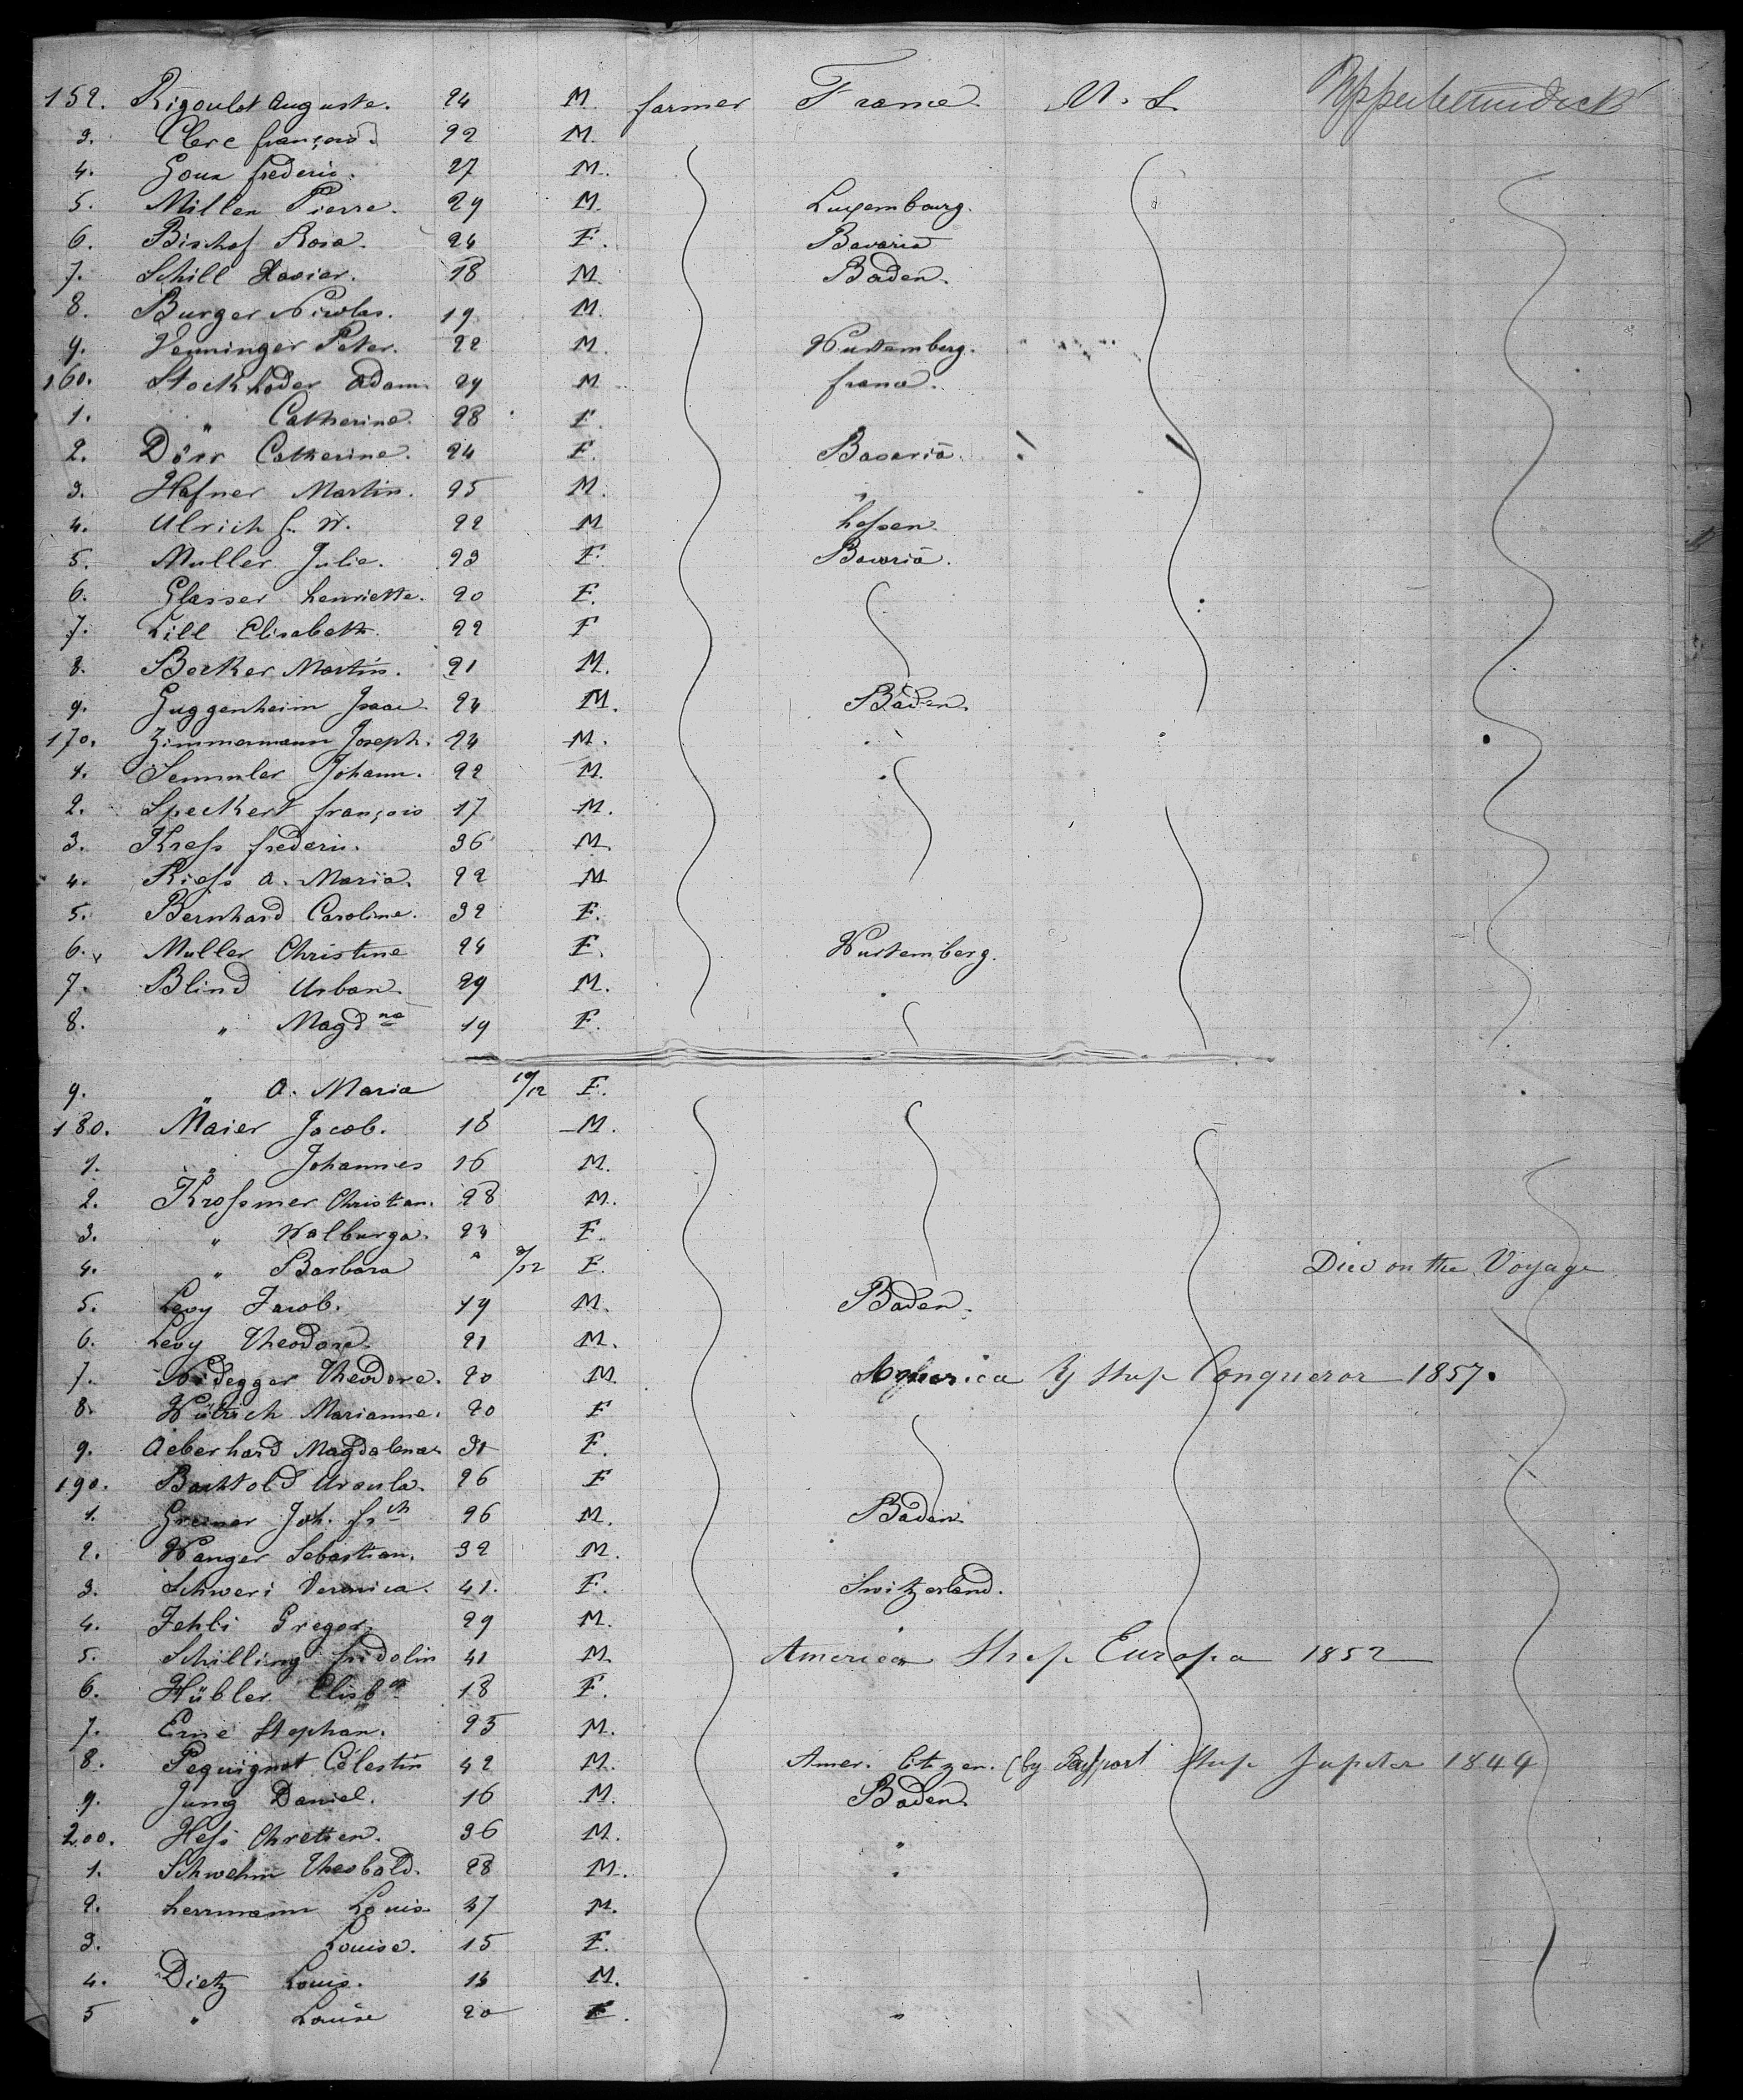 152. Rigoulot Auguste. 24 M. farmer France. U. S. Upper between deck
3. Clerc françois. 22 M.
4. Goux frederic. 27 M.
5. Millen Pierre. 29 M. Luxembourg.
6. Bischof Rosa. 24 F. Bavaria
7. Schill Xavier. 18 M. Baden.
8. Burger Nicolas. 19 M.
9. Venninger Peter. 22 M. Wurtemberg.
160. Stockhoder Adam. 29 M. france.
1. " Catherine. 28 F.
2. Dörr Catherine. 24 F. Bavaria.
3. Hafner Martin. 25 M. "
4. Ulrich G. W. 22 M hessen.
5. Muller Julie. 23 F. Bavaria.
6. Glasser henriette. 20 F.
7. Lill Elisabeth. 22 F
8. Becker Martin. 21 M.
9. Guggenheim Isaac. 24 M. Baden.
170. Zimmermann Joseph. 24 M.
1. Semmler Johann. 22 M.
2. Speckert françois 17 M.
3. Kress frederic. 36 M.
4. Riess A. Maria. 22 M
5. Bernhard Caroline. 32 F.
6. Muller Christine 24 F. Wurtemberg.
7. Blind Urban. 29 M.
8. " Magdna 19 F.
9. " A. Maria 10/12 F.
180. Maier Jacob. 18 M.
1. " Johannes 16 M.
2. Krossmer Christian. 28 M.
3. " Walburga. 24 F.
4. " Barbara " 9/12 F. Died on the Voyage
5. Levy Jacob. 19 M. Baden.
6. Levy Theodore. 21 M.
7. Nidegger Theodore. 20 M. America by Ship Conqueror 1857.
8. Wütrich Marianne. 20 F
9. Aeberhard Magdalena. 31 F.
190. Barttold Ursula. 26 F
1. Greiner Joh. frch 26 M. Baden.
2. Wanger Sebastian. 32 M.
3. Schweri Veronica. 41. F. Switzerland.
4. Jehli Gregor. 29 M. "
5. Schilling fridolin 41 M. America Ship Europa 1852
6. Hübler Elisbth 18 F.
7. Erne Stephan. 25 M.
8. Pequignot Célestin 42 M. Amer. Citizen. (by Passport Ship Jupiter 1844
9. Jung Daniel. 16 M. Baden.
200. Hess Chretien. 36 M. "
1. Schwehm Theobald. 28 M. "
2. herrmann Louis. 47 M.
3. Louise. 15 F.
4. Dietz Louis. 14 M.
5 " Louise 20 F. "